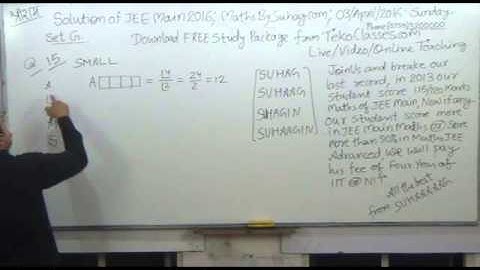 Solution of JEE Main 2016, MathsBySuhag.com, 03/April/2016 Sunday
Set G
Download FREE Study Package from TekoClasses.com
Live/Video/Online Teaching
Q. 15 SMALL
A = 14/12 = 24/2 = 12
A
L
S
SUHAG
SUHAAG
SHAGIN
SUHAAGIN
Join Us and break our
last record, in 2013 our
Student score 115/120 Marks
Maths of JEE Main, Now if any
our Student score more
in JEE Main Maths OR Score
more than 90% in Maths JEE
Advanced, we will pay
his fee of Four Year of
IIT @ NIT
All the best
from SUHAAAAG